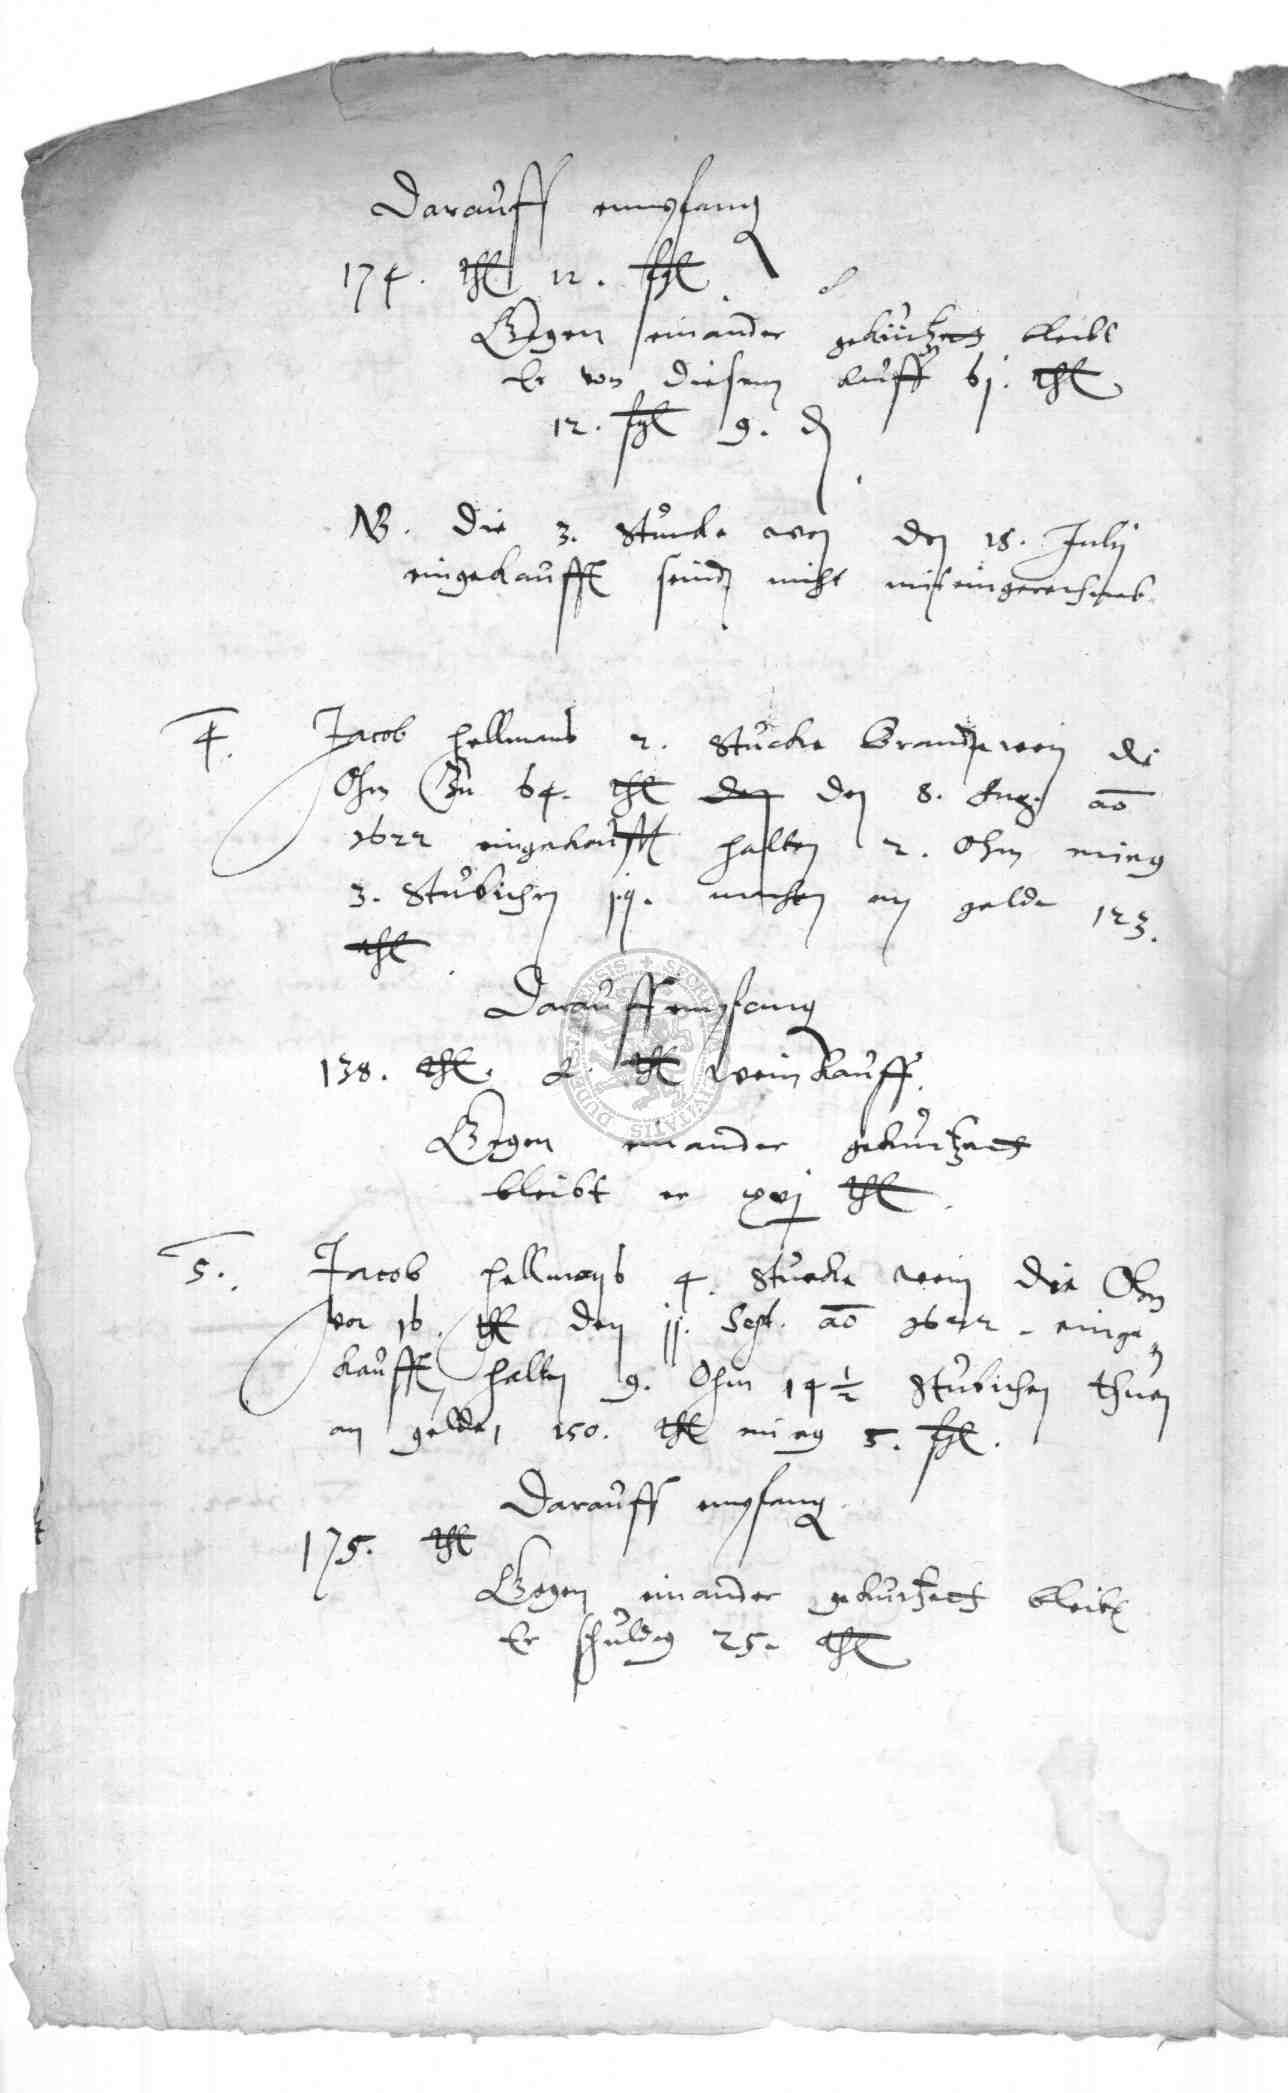 Darauff empfang
174. thl 12. sgl
Gegen einander gekürtzett bleibt
Er von diesem kauff 61. thl
12. sgl 9. d
NB. Die 3. Stucke wein den 18. July
eingekaufft seind nicht mit eingerechnet
4. Jacob Hellmans 2. Stücke brandwein die
Ohm Zu 64. thl den den 8. Aug. ao
1622 eingekaufft halten 2. Ohm minq
3. Stübichen machen an gelde 123.
thl
Darauff empfang
138. thl. 2. thl weinkauff.
Gegen einander gekürtzett
bleibt er xvj thl.
5. Jacob Hellmans 4. Stücke wein die Ohm
vor 16. thl den jj. Sept. ao 1622 einge
kaufft halten 9. Ohm 14 1/2 Stübichen thuen
an gelde, 150. thl minq 5. sgl.
Darauff empfang
175. thl
Gegen einander gekürtzett bleibt
Er schuldig 25. thl
SECRETUM CIVITATIS DUDERSTADENSIS